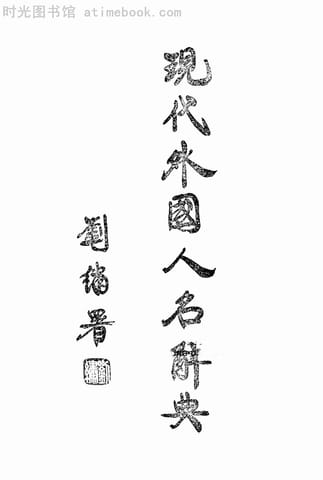 时光图书馆 atimebook.com
現代外國人名辭典
劉鏞署